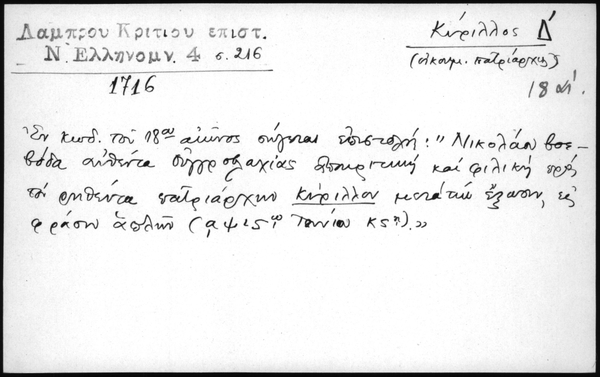 Λαμπρου Κριτιου επιστ.
Ν. Ελληνομν. 4 σ. 216
1716
Κύριλλος Δ΄
(οἰκουμ. πατριάρχης)
18 αἰ.
Ἐν κωδ. τοῦ 18ου αἰῶνος σώζεται ἐπιστολή: "Νικολάου βοε-
βόδα αὐθέντα Οὐγγροβλαχίας ἀποκριτική καὶ φιλική πρὸς
τὸν ρηθέντα πατριάρχην Κύριλλον μετὰ τὴν ἔξωσιν, εἰς
φράσιν ἁπλῆν (͵αψιϛῳ Ἰουνίου κϛῃ)."